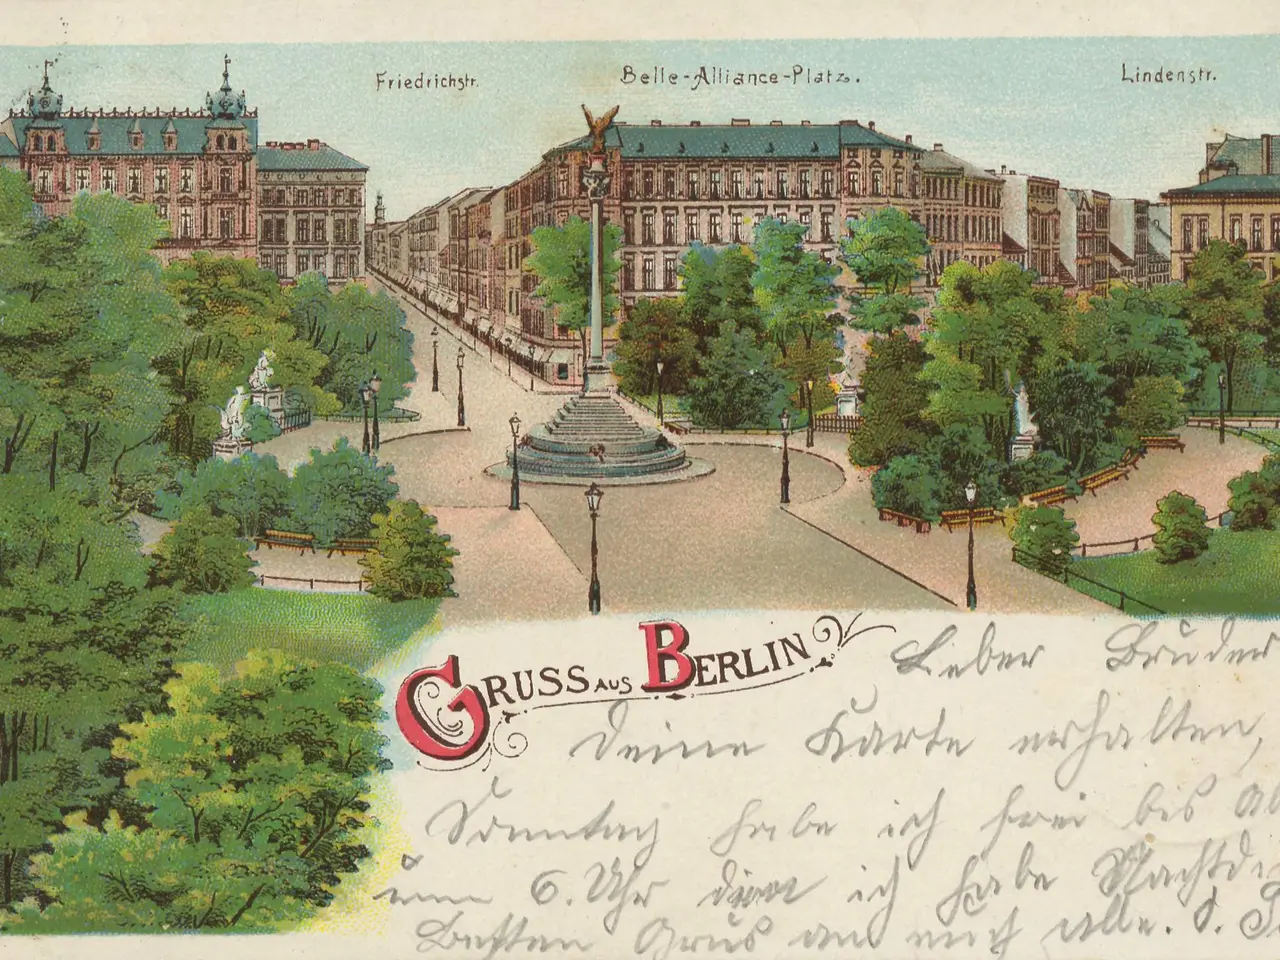 Friedrichstr. Belle-Alliance-Platz. Lindenstr.
GRUSS AUS BERLIN
Lieber Bruder
deine Karte erhalten,
Sonntag habe ich frei bis
um 6. Uhr ich habe
Besten Grus an euch alle.